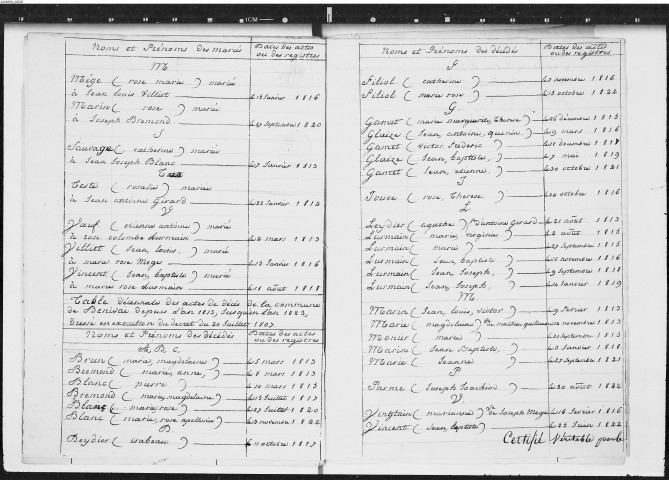 Noms et Prénoms des mariés Dates des actes ou des registres
M
Mège (rose marie) mariée
à Jean Louis Villiot le 13 Janvier 1816
Marin (rose) mariée
à Joseph Bremond le 27 Septembre 1820
S
Sauvage (catherine) mariée
à Jean Joseph Blanc le 7 Janvier 1813
T
Teste (rosalie) mariée
à Jean antoine Girard le 22 Janvier 1814
V
Vœuf (etienne antoine) marié
à rose colombe Lurmain le 2 mars 1813
Villiot (Jean, Louis,) marié
à marie rose Mege le 13 Janvier 1816
Vincent (Jean, baptiste) marié
à marie rose Lurmain le 18 août 1818
Table décennale des actes de décès de la commune
de Benivay depuis l'an 1813, jusqu'en l'an 1823,
dressé en exécution du décret du 20 Juillet 1807.
Noms et Prénoms des décédés Dates des actes ou des registres
A, B, C,
Brun (marie, magdelaine) le 5 mars 1813
Bremond (marie, anne,) le 8 mars 1813
Blanc (pierre) le 10 mars 1813
Bremond (marie, magdelaine) le 14 Juillet 1817
Blanc (marie, rose) le 27 Juillet 1820
Blanc (marie, rose, apollonie) le 3 novembre 1822
B
Beydier (isabeau) le 11 octobre 1817
Noms et Prénoms des décédés Dates des actes ou des registres
F
Filiol (catherine) le 7 novembre 1816
Filiol (marie rose) le 13 octobre 1822
G
Gamet (marie marguerite, Therese) le 26 décembre 1813
Glaize (Jean, antoine, quenin,) le 9 mars 1816
Gamet (victor, frederic) le 10 décembre 1817
Glaize (Jean, baptiste,) le 7 mai 1819
Gamet (Jean, etienne.) le 30 octobre 1821
J
Jouve (rose, Therese) le 20 octobre 1816
L
Leydier (agathe) Vve d'antoine Girard le 21 août 1813
Lurmain (marie, virginie) le 2 août 1815
Lurmain (marie) le 27 Septembre 1815
Lurmain (Jean, baptiste) le 10 novembre 1816
Lurmain (Jean, Joseph,) le 9 Septembre 1818
Lurmain (Jean, Joseph,) le 14 Janvier 1819
M
Marin (Jean, louis, victor) le 9 fevrier 1813
Marie (magdelaine) novembre 1813
Monier (marie) Septembre 1813
Marin (Jean Baptiste,) le 3 Janvier 1818
Marie (Jeanne) le 27 Septembre 1821
P
Parme (Joseph Joachim) le 20 août 1822
V
Vinglain (marianne) Vve de Joseph Mege le 16 février 1816
Vincent (Jean, baptiste) le 25 Juin 1822
Certifié Véritable par le